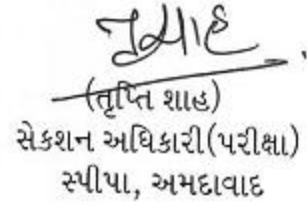 (તૃપ્તિ શાહ)
સેક્શન અધિકારી(પરીક્ષા)
સ્પીપા, અમદાવાદ